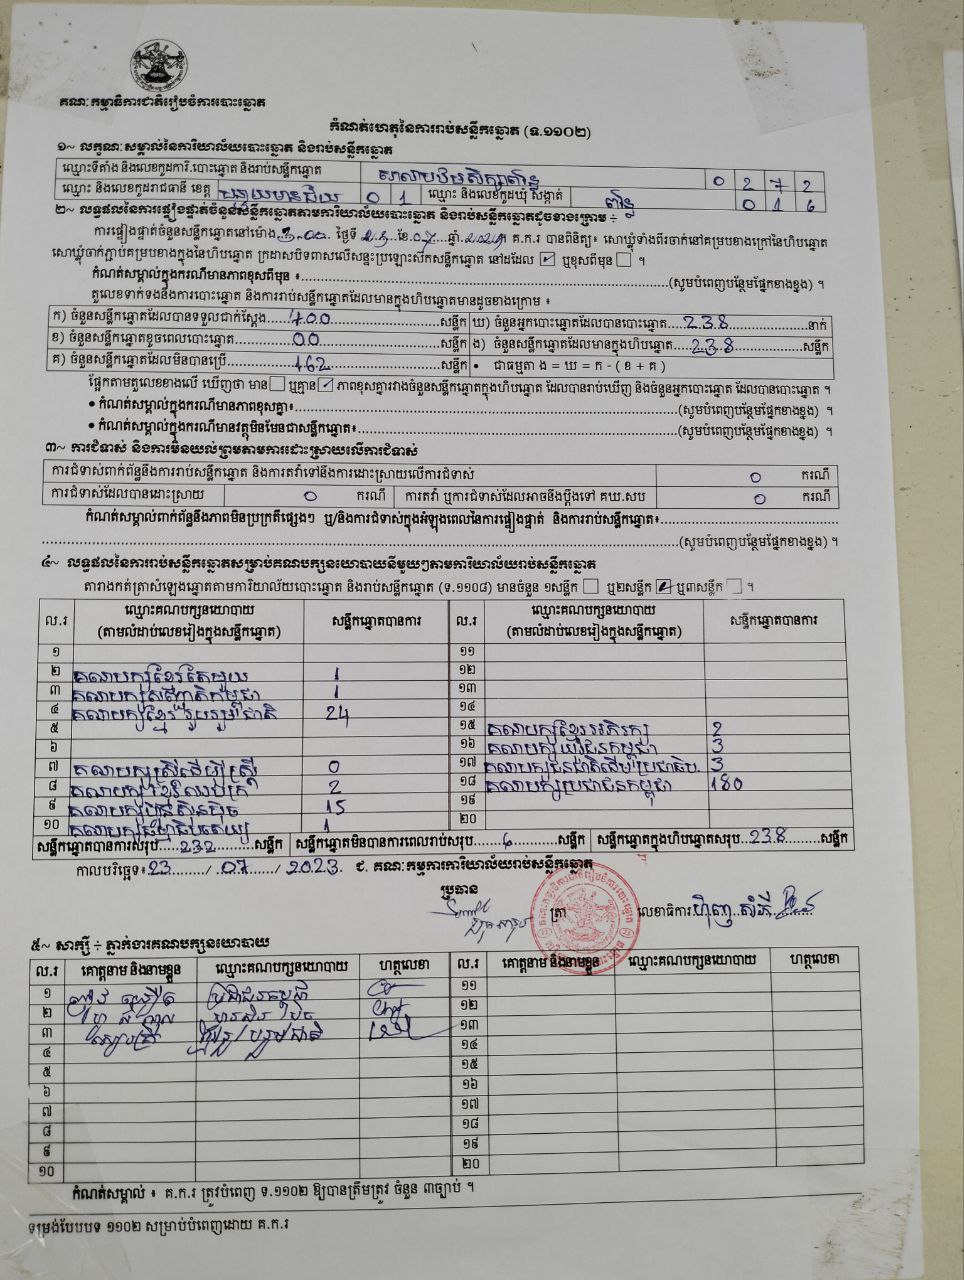 គណៈកម្មាធិការជាតិរៀបចំការបោះឆ្នោត
កំណត់ហេតុនៃការរាប់សន្លឹកឆ្នោត (ទ.១១០២)
១~ លក្ខណៈសម្គាល់នៃការិយាល័យបោះឆ្នោត និងរាប់សន្លឹកឆ្នោត
ឈ្មោះទីតាំង និងលេខកូដការិ.បោះឆ្នោត និងរាប់សន្លឹកឆ្នោត 0 2 7 2
ឈ្មោះ និងលេខកូដរាជធានី ខេត្ត បន្ទាយមានជ័យ 0 1 ឈ្មោះ និងលេខកូដឃុំ សង្កាត់ 0 1 6
២~ លទ្ធផលនៃការផ្ទៀងផ្ទាត់ចំនួនសន្លឹកឆ្នោតតាមការិយាល័យបោះឆ្នោត និងរាប់សន្លឹកឆ្នោតដូចខាងក្រោម ÷
ការផ្ទៀងផ្ទាត់ចំនួនសន្លឹកឆ្នោតនៅម៉ោង 3:00 ថ្ងៃទី ២៣ ខែ ០៧ ឆ្នាំ គ.ក.រ បានពិនិត្យ៖ សោឃ្លុំទាំងពីរចាក់នៅគម្របខាងក្រៅនៃហិបឆ្នោត
សោឃ្លុំចាក់ភ្ជាប់គម្របខាងក្នុងនៃហិបឆ្នោត ក្រដាសបិទពាសលើសន្ទះប្រឡោះស៊កសន្លឹកឆ្នោត នៅដដែល ☑ ឬខុសពីមុន ☐ ។
កំណត់សម្គាល់ក្នុងករណីមានភាពខុសពីមុន ៖ (សូមបំពេញបន្ថែមផ្នែកខាងខ្នង) ។
តួលេខទាក់ទងនឹងការបោះឆ្នោត និងការរាប់សន្លឹកឆ្នោតដែលមានក្នុងហិបឆ្នោតមានដូចខាងក្រោម ៖
ក) ចំនួនសន្លឹកឆ្នោតដែលបានទទួលជាក់ស្តែង 400 សន្លឹក ឃ) ចំនួនអ្នកបោះឆ្នោតដែលបានបោះឆ្នោត 238 នាក់
ខ) ចំនួនសន្លឹកឆ្នោតខូចពេលបោះឆ្នោត 00 សន្លឹក ង) ចំនួនសន្លឹកឆ្នោតដែលមានក្នុងហិបឆ្នោត 238 សន្លឹក
គ) ចំនួនសន្លឹកឆ្នោតដែលមិនបានប្រើ 162 សន្លឹក • ជាធម្មតា ង = ឃ = ក - ( ខ + គ )
ផ្អែកតាមតួលេខខាងលើ ឃើញថា មាន ☐ ឬគ្មាន ☑ ភាពខុសគ្នារវាងចំនួនសន្លឹកឆ្នោតក្នុងហិបឆ្នោត ដែលបានរាប់ឃើញ និងចំនួនអ្នកបោះឆ្នោត ដែលបានបោះឆ្នោត ។
• កំណត់សម្គាល់ក្នុងករណីមានភាពខុសគ្នា៖ (សូមបំពេញបន្ថែមផ្នែកខាងខ្នង) ។
• កំណត់សម្គាល់ក្នុងករណីមានវត្ថុមិនមែនជាសន្លឹកឆ្នោត៖ (សូមបំពេញបន្ថែមផ្នែកខាងខ្នង) ។
៣~ ការជំទាស់ និងការមិនយល់ព្រមតាមការដោះស្រាយលើការជំទាស់
ការជំទាស់ពាក់ព័ន្ធនឹងការរាប់សន្លឹកឆ្នោត និងការតវ៉ាទៅនឹងការដោះស្រាយលើការជំទាស់ 0 ករណី
ការជំទាស់ដែលបានដោះស្រាយ 0 ករណី ការតវ៉ា ឬការជំទាស់ដែលអាចនឹងប្តឹងទៅ គឃ.សប 0 ករណី
កំណត់សម្គាល់ពាក់ព័ន្ធនឹងភាពមិនប្រក្រតីផ្សេងៗ ឬ/និងការជំទាស់ក្នុងអំឡុងពេលនៃការផ្ទៀងផ្ទាត់ និងការរាប់សន្លឹកឆ្នោត៖
(សូមបំពេញបន្ថែមផ្នែកខាងខ្នង) ។
៤~ លទ្ធផលនៃការរាប់សន្លឹកឆ្នោតសម្រាប់គណបក្សនយោបាយនីមួយៗតាមការិយាល័យរាប់សន្លឹកឆ្នោត
តារាងកត់ត្រាសំឡេងឆ្នោតតាមការិយាល័យបោះឆ្នោត និងរាប់សន្លឹកឆ្នោត (ទ.១១០៨) មានចំនួន ១សន្លឹក ☐ ឬ២សន្លឹក ☑ ឬ៣សន្លឹក ☐ ។
ល.រ ឈ្មោះគណបក្សនយោបាយ (តាមលំដាប់លេខរៀងក្នុងសន្លឹកឆ្នោត) សន្លឹកឆ្នោតបានការ ល.រ ឈ្មោះគណបក្សនយោបាយ (តាមលំដាប់លេខរៀងក្នុងសន្លឹកឆ្នោត) សន្លឹកឆ្នោតបានការ
១ ១១
២ គណបក្សខ្មែរតែមួយ 1 ១២
៣ គណបក្សសញ្ជាតិកម្ពុជា 1 ១៣
៤ គណបក្សខ្មែររួបរួមជាតិ 24 ១៤
៥ ១៥ គណបក្សខ្មែរអភិរក្ស 2
៦ ១៦ គណបក្សយុវជនកម្ពុជា 3
៧ គណបក្សស្រីដើម្បីស្ត្រី 0 ១៧ គណបក្សជនជាតិដើមប្រជាធិប. 3
៨ 2 ១៨ គណបក្សប្រជាជនកម្ពុជា 180
៩ គណបក្សហ៊្វុនស៊ិនប៉ិច 15 ១៩
១០ គណបក្សធម្មាធិបតេយ្យ 1 ២០
សន្លឹកឆ្នោតបានការសរុប 232 សន្លឹក សន្លឹកឆ្នោតមិនបានការពេលរាប់សរុប 6 សន្លឹក សន្លឹកឆ្នោតក្នុងហិបឆ្នោតសរុប 238 សន្លឹក
កាលបរិច្ឆេទ៖ 23 / 07 / 2023 ជ. គណៈកម្មការការិយាល័យរាប់សន្លឹកឆ្នោត
ប្រធាន
ត្រា លេខាធិការ
៥~ សាក្សី ÷ ភ្នាក់ងារគណបក្សនយោបាយ
ល.រ គោត្តនាម និងនាមខ្លួន ឈ្មោះគណបក្សនយោបាយ ហត្ថលេខា ល.រ គោត្តនាម និងនាមខ្លួន ឈ្មោះគណបក្សនយោបាយ ហត្ថលេខា
១ ប្រជាជនកម្ពុជា ១១
២ ១២
៣ ១៣
៤ ១៤
៥ ១៥
៦ ១៦
៧ ១៧
៨ ១៨
៩ ១៩
១០ ២០
កំណត់សម្គាល់ ៖ គ.ក.រ ត្រូវបំពេញ ទ.១១០២ ឱ្យបានត្រឹមត្រូវ ចំនួន ៣ច្បាប់ ។
ទម្រង់បែបបទ ១១០២ សម្រាប់បំពេញដោយ គ.ក.រ